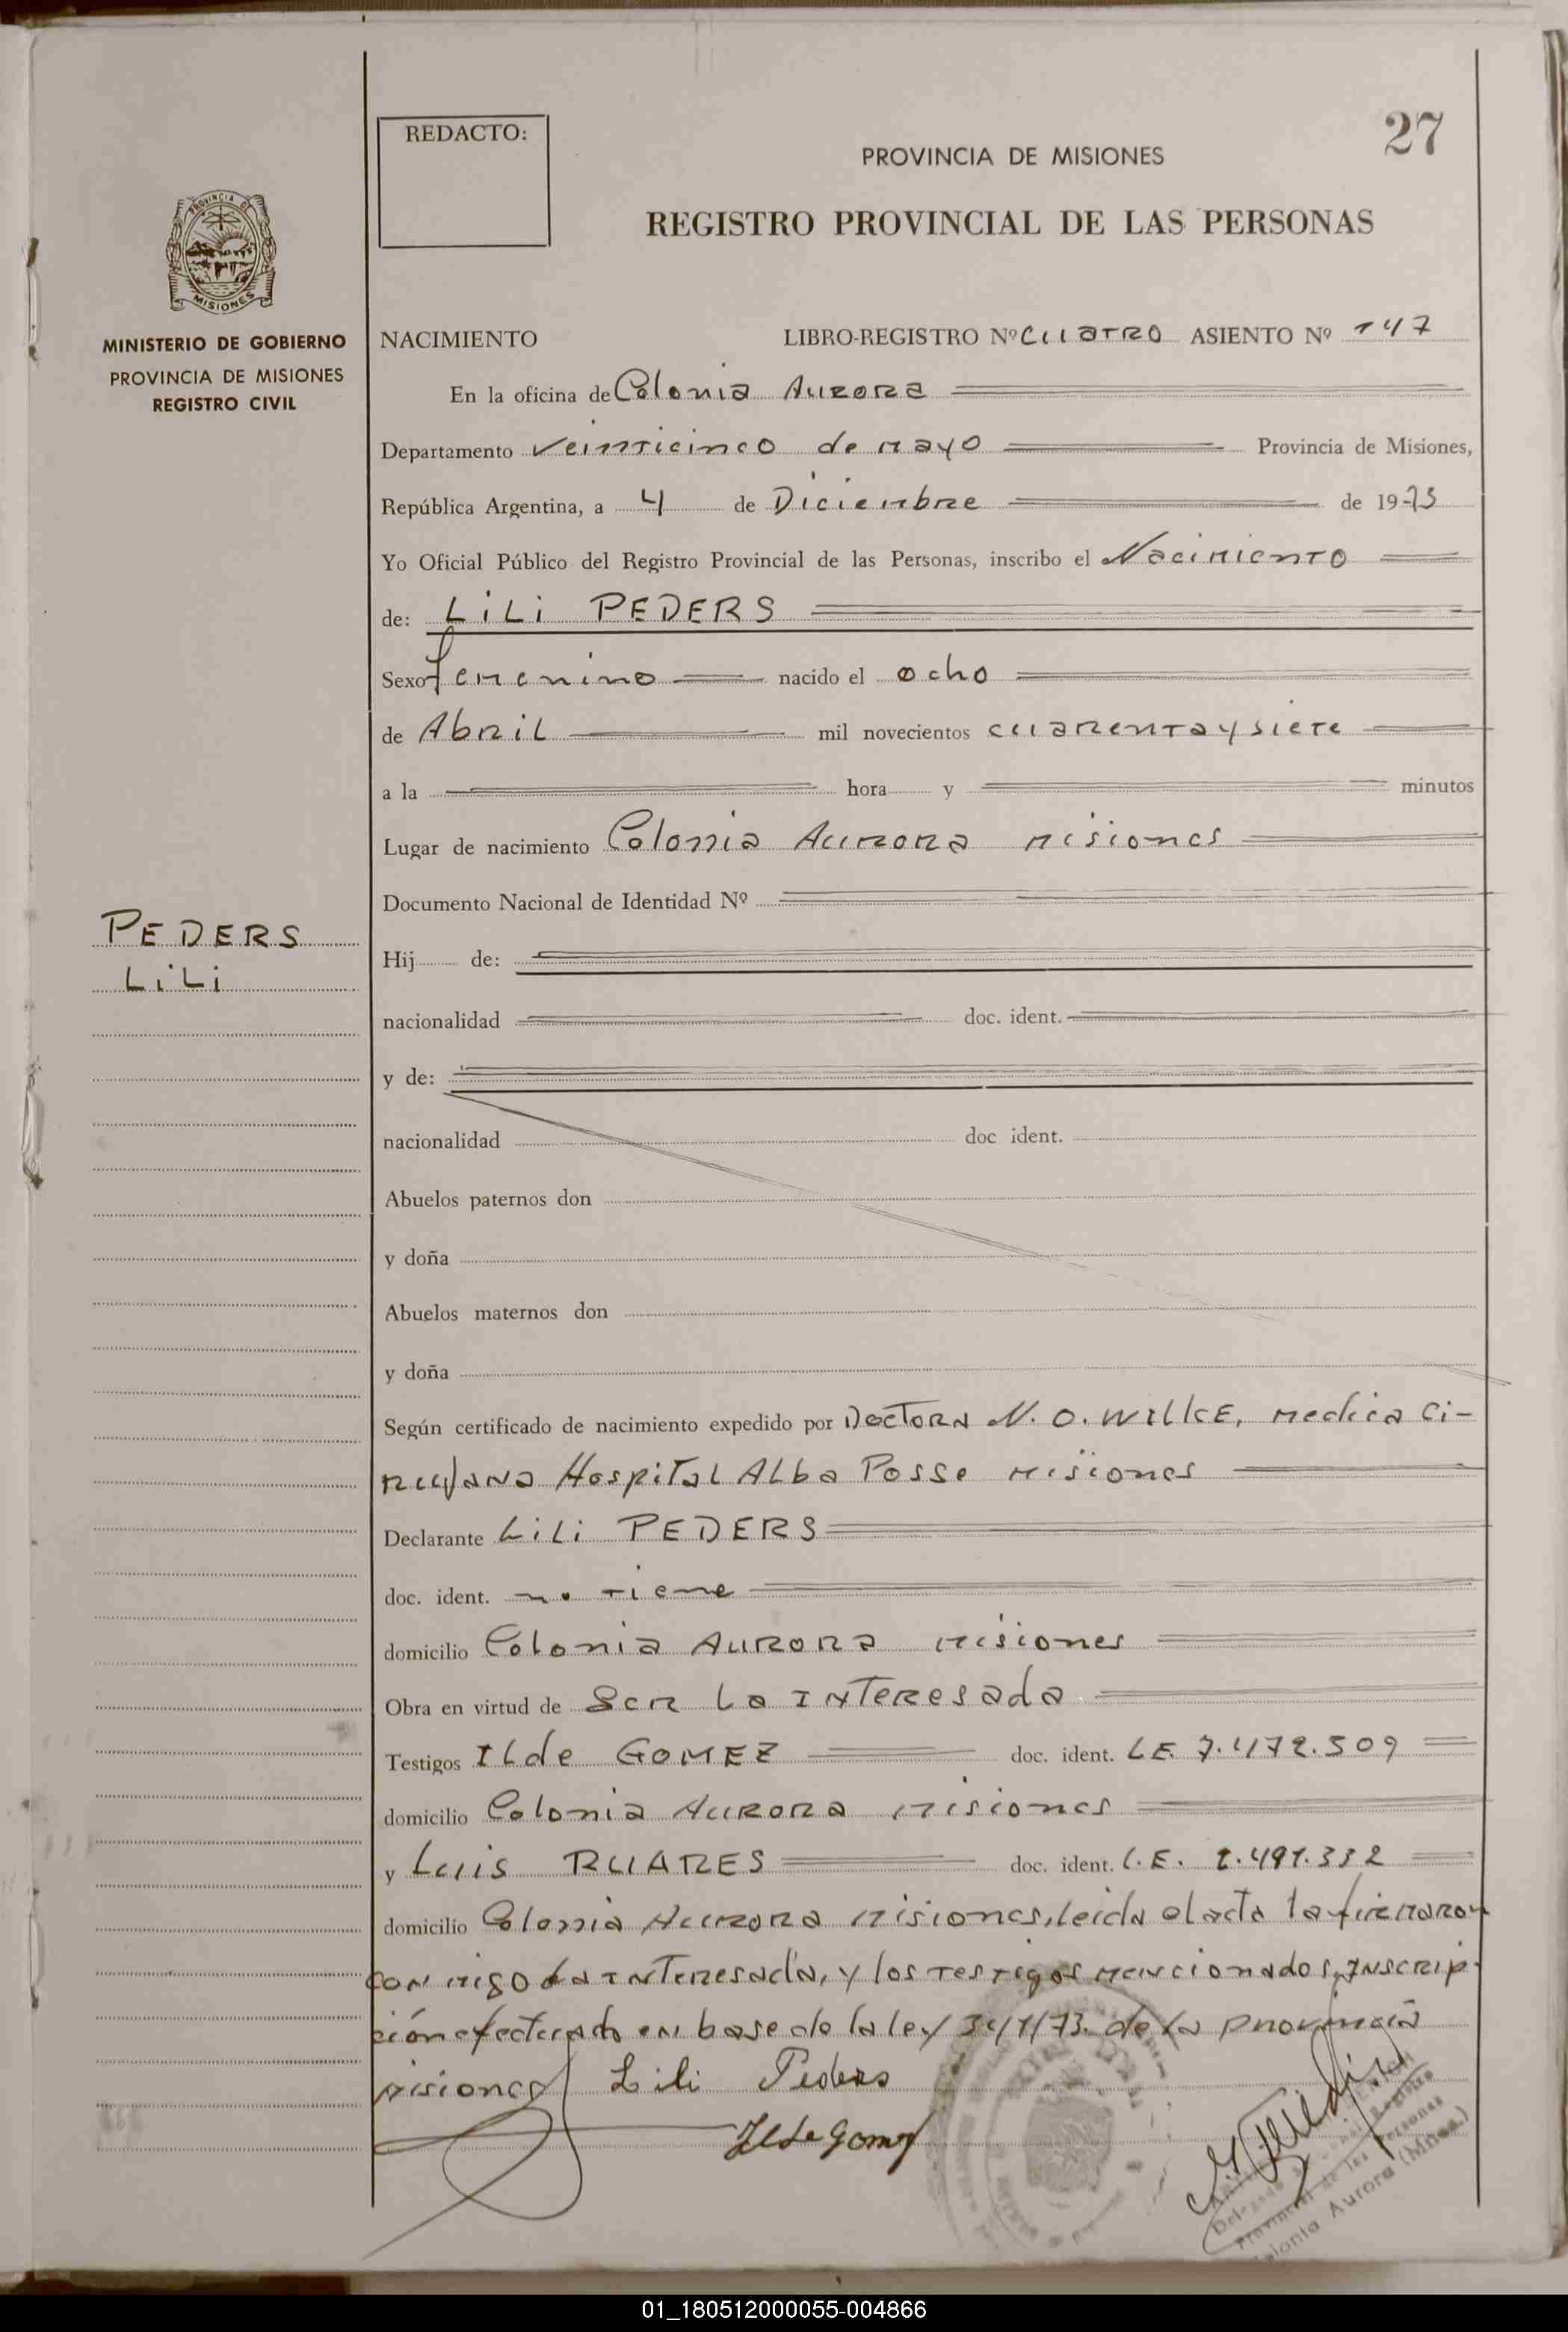 27
REDACTO:
PROVINCIA DE MISIONES
REGISTRO PROVINCIAL DE LAS PERSONAS
PROVINCIA DE
MISIONES
MINISTERIO DE GOBIERNO
PROVINCIA DE MISIONES
REGISTRO CIVIL
NACIMIENTO LIBRO-REGISTRO Nº Cuatro ASIENTO Nº 147
En la oficina de Colonia Aurora
Departamento veinticinco de mayo Provincia de Misiones,
República Argentina, a 4 de Diciembre de 1973
Yo Oficial Público del Registro Provincial de las Personas, inscribo el Nacimiento
de: LiLi PEDERS
Sexo femenino nacido el ocho
de Abril mil novecientos cuarenta y siete
a la hora y minutos
Lugar de nacimiento Colonia Aurora misiones
Documento Nacional de Identidad Nº
PEDERS
LiLi
Hij de:
nacionalidad doc. ident.
y de:
nacionalidad doc ident.
Abuelos paternos don
y doña
Abuelos maternos don
y doña
Según certificado de nacimiento expedido por Doctora N. O. WILKE, medica Ci-
rujana Hospital Alba Posse misiones
Declarante LiLi PEDERS
doc. ident. no tiene
domicilio Colonia Aurora misiones
Obra en virtud de Ser La Interesada
Testigos ILde GOMEZ doc. ident. LE. 7.472.509
domicilio Colonia Aurora misiones
y Luis RUARES doc. ident. L.E. 2.491.332
domicilio Colonia Aurora misiones, leida el acta la firmaron
con migo La interesada, y los testigos mencionados, Inscrip-
ción efectuado en base de la ley 341/73. de la provincia
misiones Lili Peders
Ilde Gomez
Provincial de las Personas
Colonia Aurora (Mnes.)
01_180512000055-004866